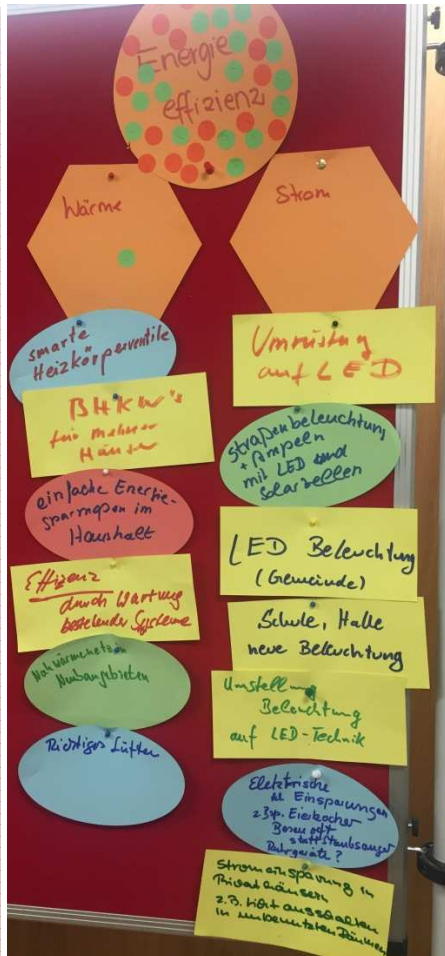 Energie
effizienz
Wärme
smarte
Heizkörperventile
BHKW's
für mehrere
Häuser
einfache Energie-
sparmaßen im
Haushalt
Effizenz
durch Wartung
bestehender Systeme
Nahwärmenetz in
Neubaugebieten
Richtiges Lüften
Strom
Umrüstung
auf LED
Straßenbeleuchtung
+ Ampeln
mit LED und
Solarzellen
LED Beleuchtung
(Gemeinde)
Schule, Halle
neue Beleuchtung
Umstellung
Beleuchtung
auf LED-Technik
Elektrische
Einsparungen
z.Bsp. Eierkocher
Besen oft
statt Staubsauger
Stromeinsparung in
Privathäusern
z.B. Licht ausschalten
in unbenutzten Räumen